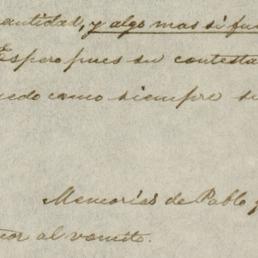 cantidad, y algo mas si fue
Espero pues su contesta
uedo como siempre su
Memorias de Pablo y
or al vomito.